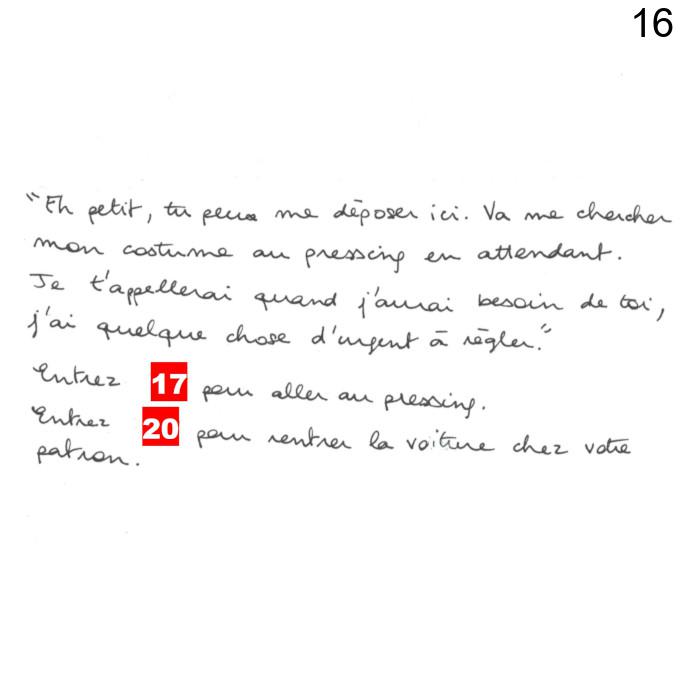 16
"Eh petit, tu peux me déposer ici. Va me chercher
mon costume au pressing en attendant.
Je t'appellerai quand j'aurai besoin de toi,
j'ai quelque chose d'urgent à règler."
Entrez 17 pour aller au pressing.
Entrez 20 pour rentrer la voiture chez votre
patron.